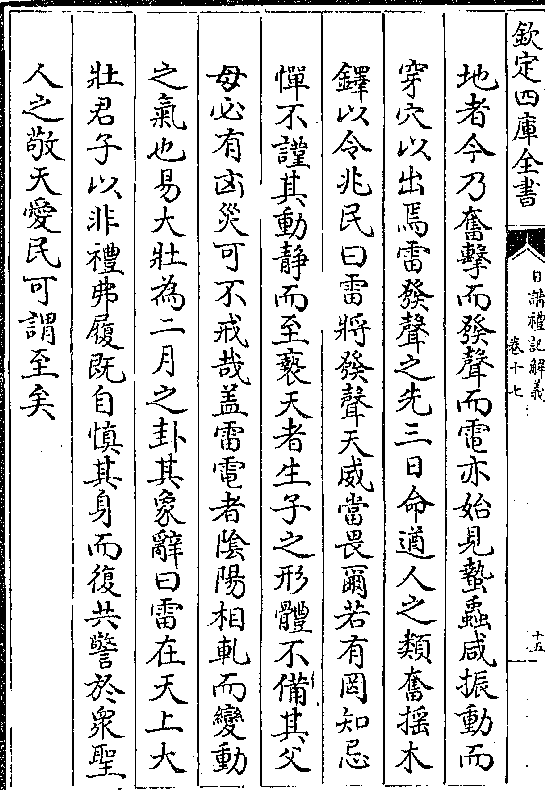 欽定四庫全書
日講禮記解義
卷十七
十五
地者今乃奮擊而發聲而電亦始見蟄蟲咸振動而
穿穴以出焉雷發聲之先三日命遒人之類奮揺木
鐸以令兆民曰雷將發聲天威當畏爾若有罔知忌
憚不謹其動静而至褻天者生子之形體不備其父
母必有凶災可不戒哉盖雷電者陰陽相軋而變動
之氣也易大壯為二月之卦其象辭曰雷在天上大
壯君子以非禮弗履既自慎其身而復共警於衆聖
人之敬天愛民可謂至矣